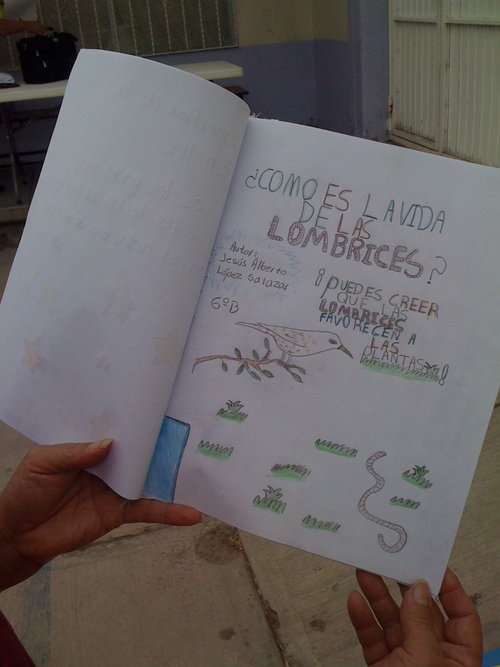 ¿COMO ES LA VIDA
DE LAS
LOMBRICES?
Autor:
Jesús Alberto
López Salazar
6ºB
¡PUEDES CREER
QUE LAS
LOMBRICES
FAVORECEN A
LAS
PLANTAS!